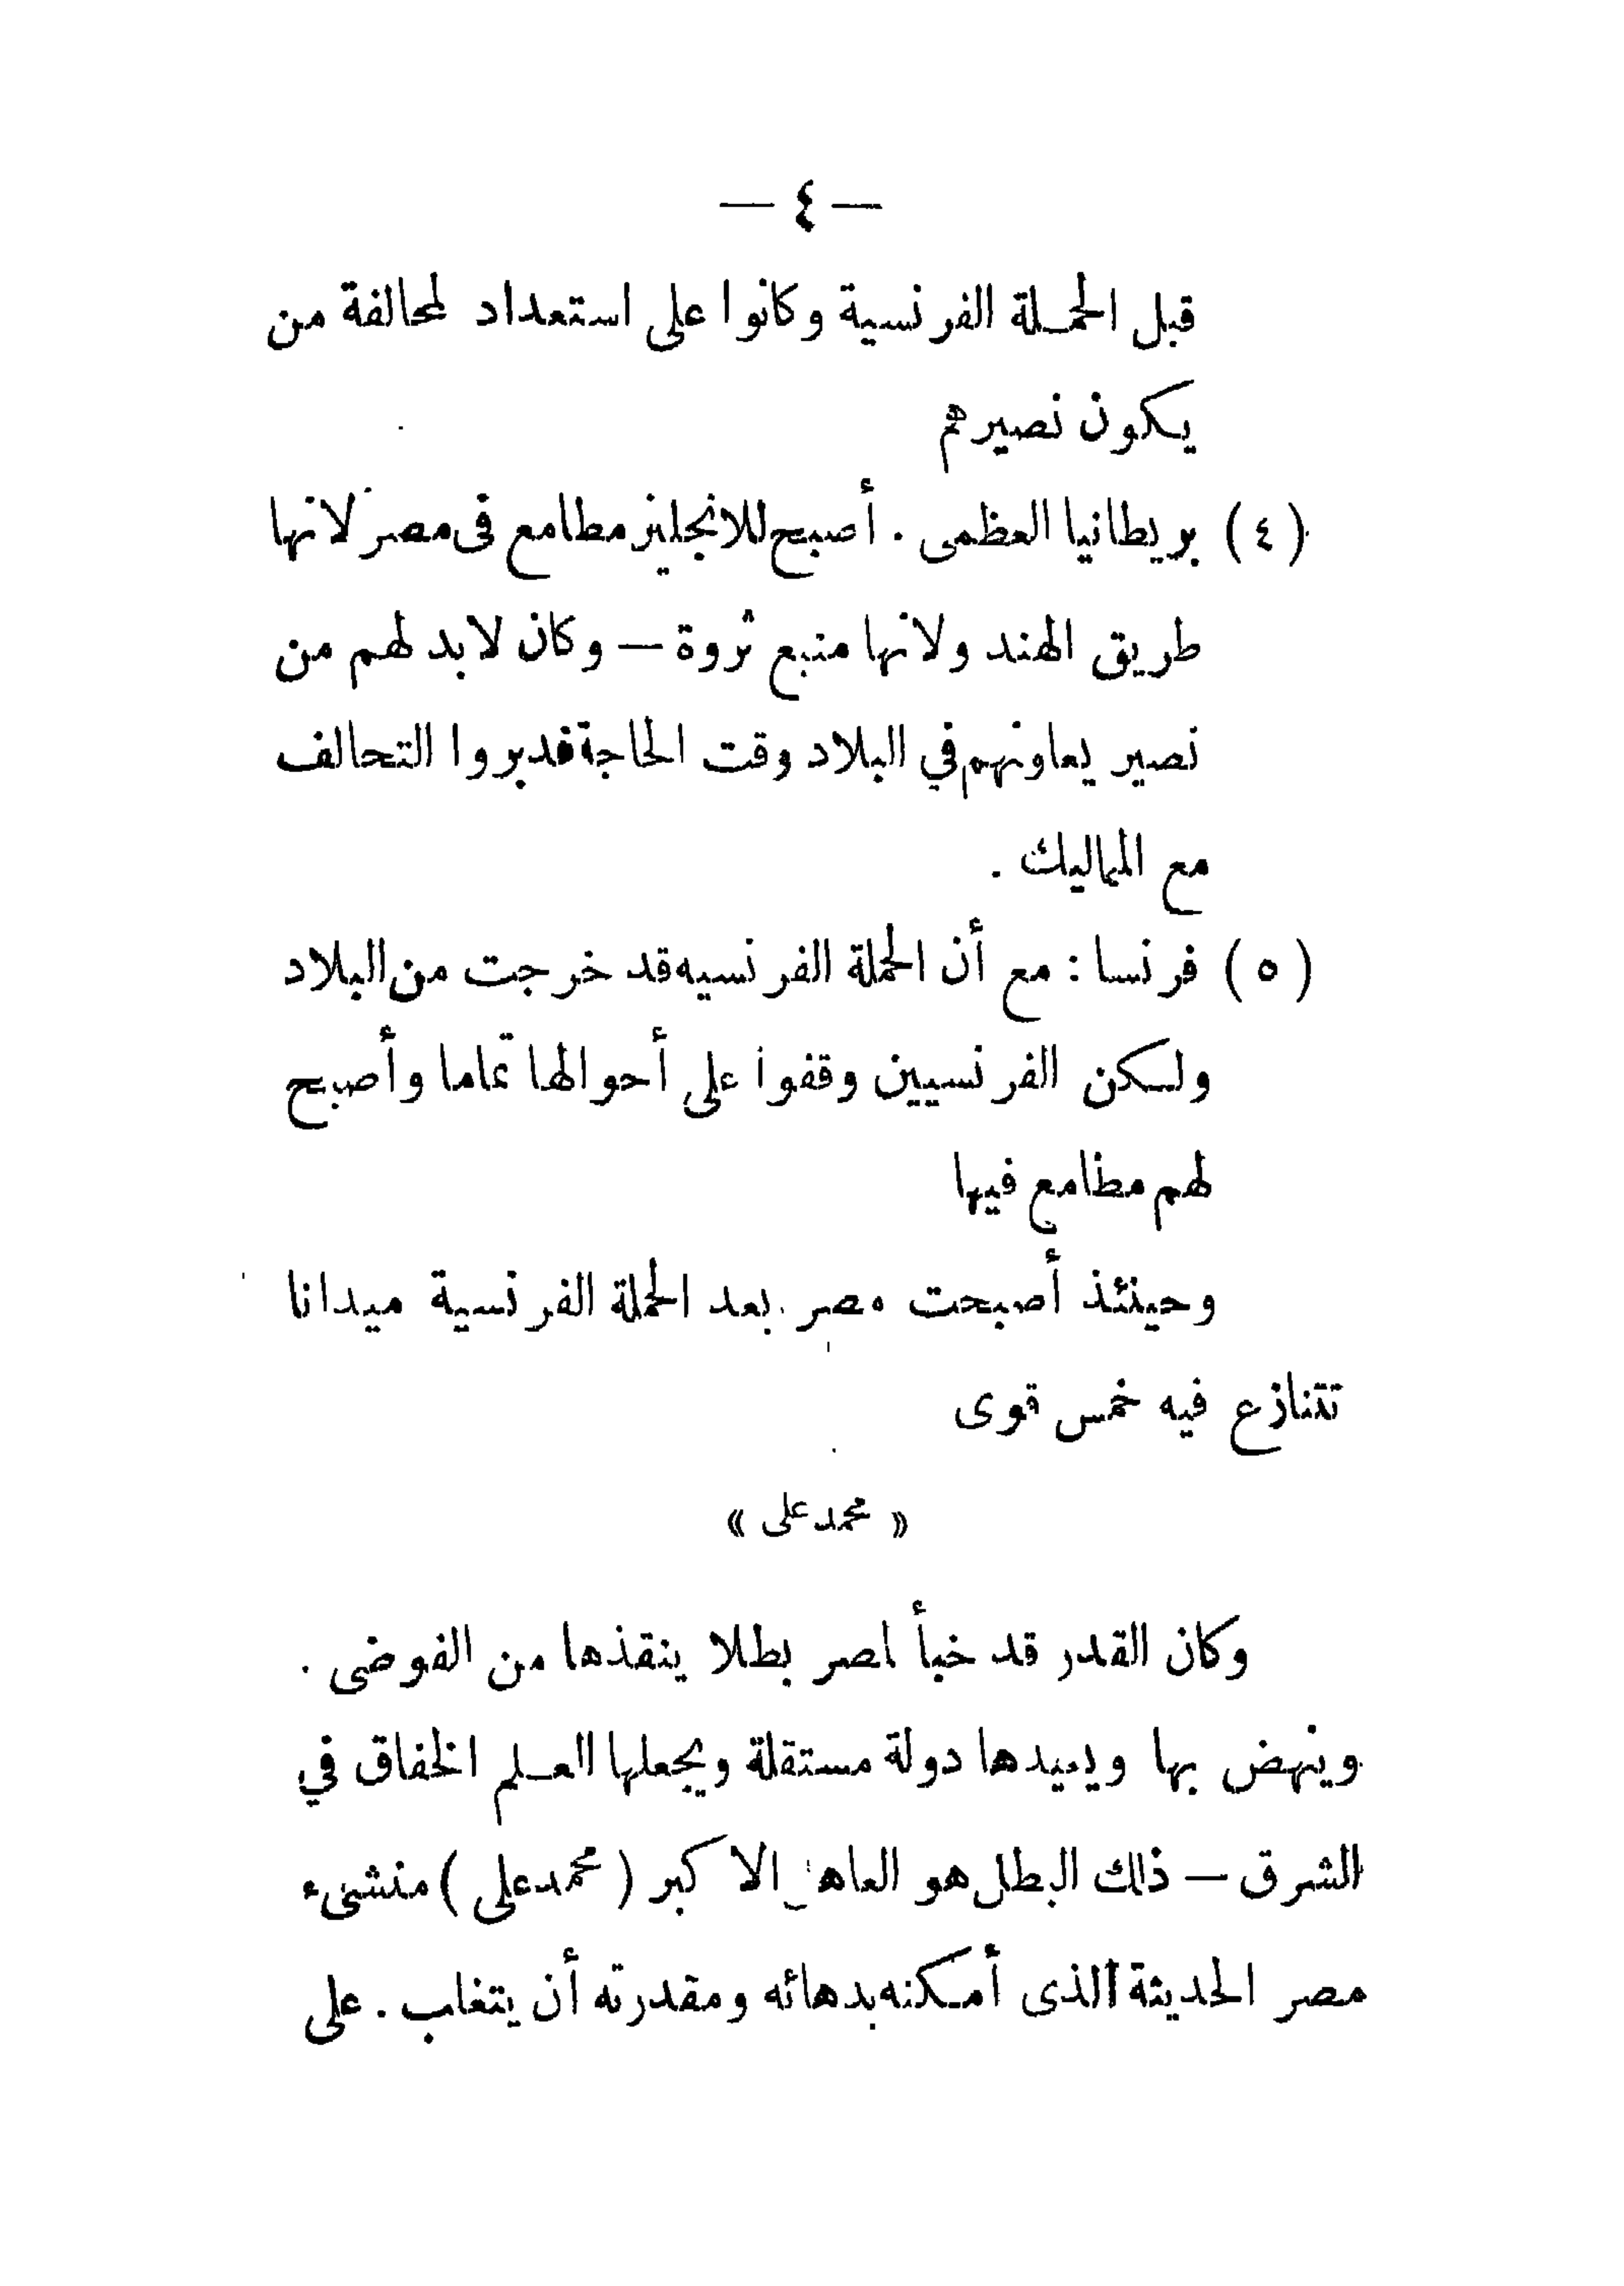 — ٤ —
قبل الحملة الفرنسية وكانوا على استعداد لمحالفة من
يكون نصيرهم
( ٤ ) بريطانيا العظمى . أصبح للانجليز مطامع فى مصر لانها
طريق الهند ولانها منبع ثروة — وكان لابد لهم من
نصير يعاونهم في البلاد وقت الحاجة فدبروا التحالف
مع المماليك .
( ٥ ) فرنسا : مع أن الحملة الفرنسيه قد خرجت من البلاد
ولكن الفرنسيين وقفوا على أحوالها تماما وأصبح
لهم مطامع فيها
وحينئذ أصبحت مصر بعد الحملة الفرنسية ميدانا
تتنازع فيه خمس قوى
« محمد على »
وكان القدر قد خبأ لمصر بطلا ينقذها من الفوضى .
وينهض بها ويعيدها دولة مستقلة ويجعلها العلم الخفاق في
الشرق — ذلك البطل هو العاهل الاكبر ( محمد على ) منشىء
مصر الحديثة الذى أمكنه بدهائه ومقدرته أن يتغلب . على